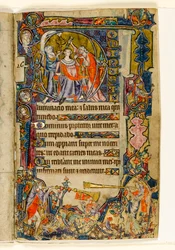 luminacio mea & salus mea que
timebo
Dominus protector vite me
a quo trepidabo
Dum appiant super me nocen
tes ut edant carnes meas
Qui tribulant me inimici mei
infirmati sunt